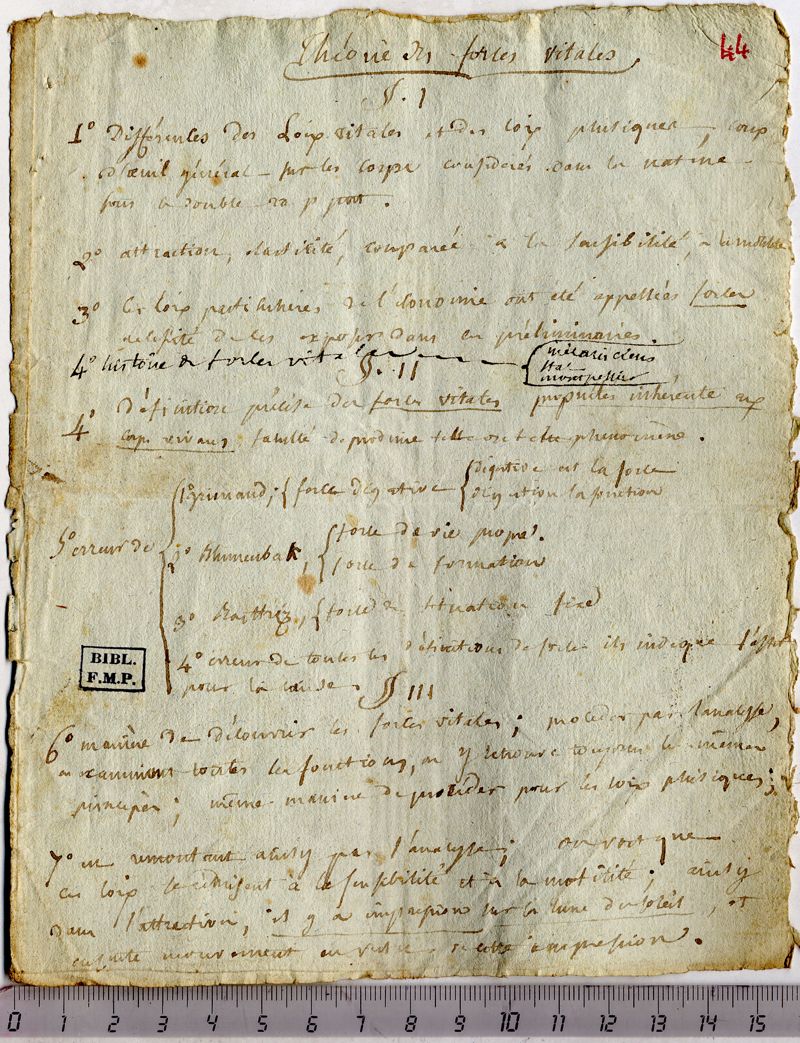 Théorie des forces vitales.
44
§. I
1° Différences des Loix vitales et des loix phisiques, coup
d'oeuil général sur les corps considérés dans la nature
sous ce double rapport.
2° attraction, élasticité, comparée à la sensibilité, à la motilité
3° les loix particulières de l'économie ont été appellées forces
nécessité de les exposer dans les préliminaires.
4° histoire des forces vitales
mécaniciens
stal
montpellier
§. II
4° définition précise des forces vitales propriétés inhérente aux
corps vivans, faculté de produire telle ou telle phénomène.
5° erreur de
1° grimaud, force digestive
digestive est la force
digestion la fonction
2° Blumenbak,
force de vie propre.
force de formation
3° Barthez, force de situation fixe
4° erreur de toutes les définitions de force ils indiqué l'effet
pour la cause.
§ III
6° manière de découvrir les forces vitales; procéder par l'analyse,
en examinant toutes les fonctions, on y retrouve toujours les mêmes
principes; même manière de procéder pour les loix phisiques;
7° en remontant ainsy par l'analyse; on voit que
ces loix se réduisent à la sensibilité et à la motilité; ainsy
dans l'attraction, il y a impression sur la lune du soleil, et
ensuite mouvement en vertu de cette impression.
BIBL.
F.M.P.
0 1 2 3 4 5 6 7 8 9 10 11 12 13 14 15